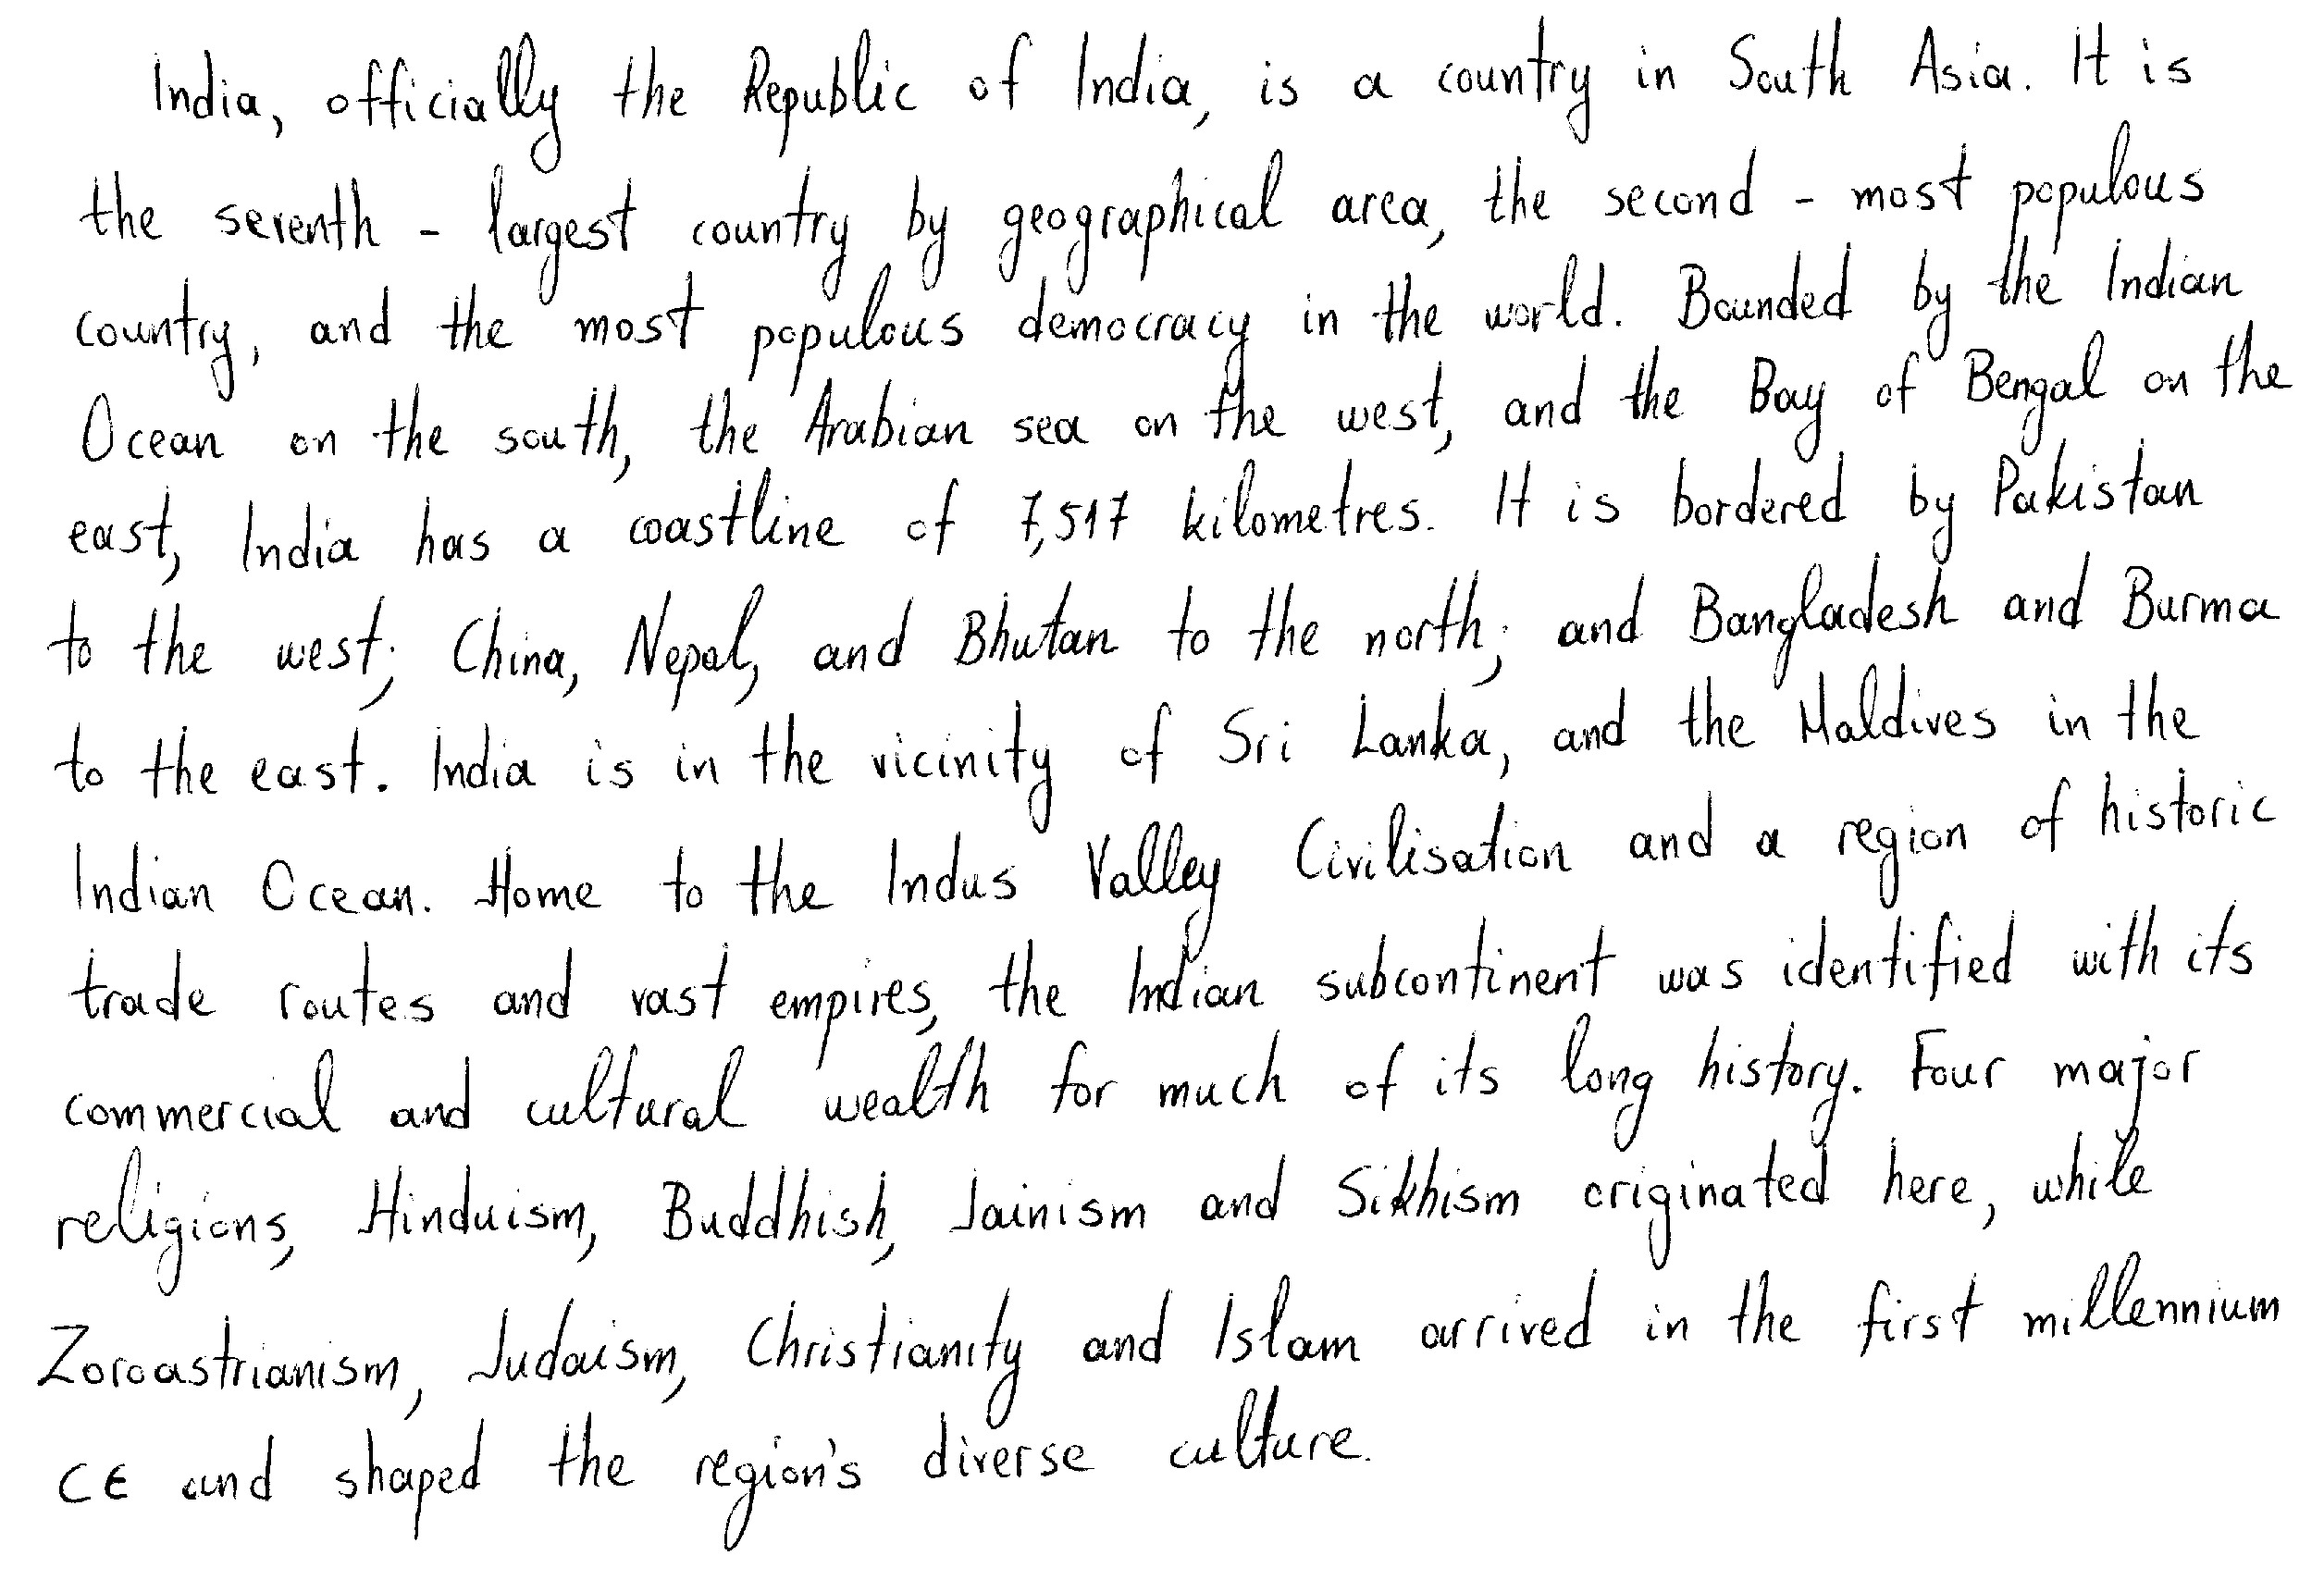 India, officially the Republic of India, is a country in South Asia. It is
the seventh - largest country by geographical area, the second - most populous
country, and the most populous democracy in the world. Bounded by the Indian
Ocean on the south, the Arabian sea on the west, and the Bay of Bengal on the
east, India has a coastline of 7,517 kilometres. It is bordered by Pakistan
to the west; China, Nepal, and Bhutan to the north; and Bangladesh and Burma
to the east. India is in the vicinity of Sri Lanka, and the Maldives in the
Indian Ocean. Home to the Indus Valley Civilisation and a region of historic
trade routes and vast empires, the Indian subcontinent was identified with its
commercial and cultural wealth for much of its long history. Four major
religions, Hinduism, Buddhish, Jainism and Sikhism originated here, while
Zoroastrianism, Judaism, Christianity and Islam arrived in the first millennium
CE and shaped the region's diverse culture.